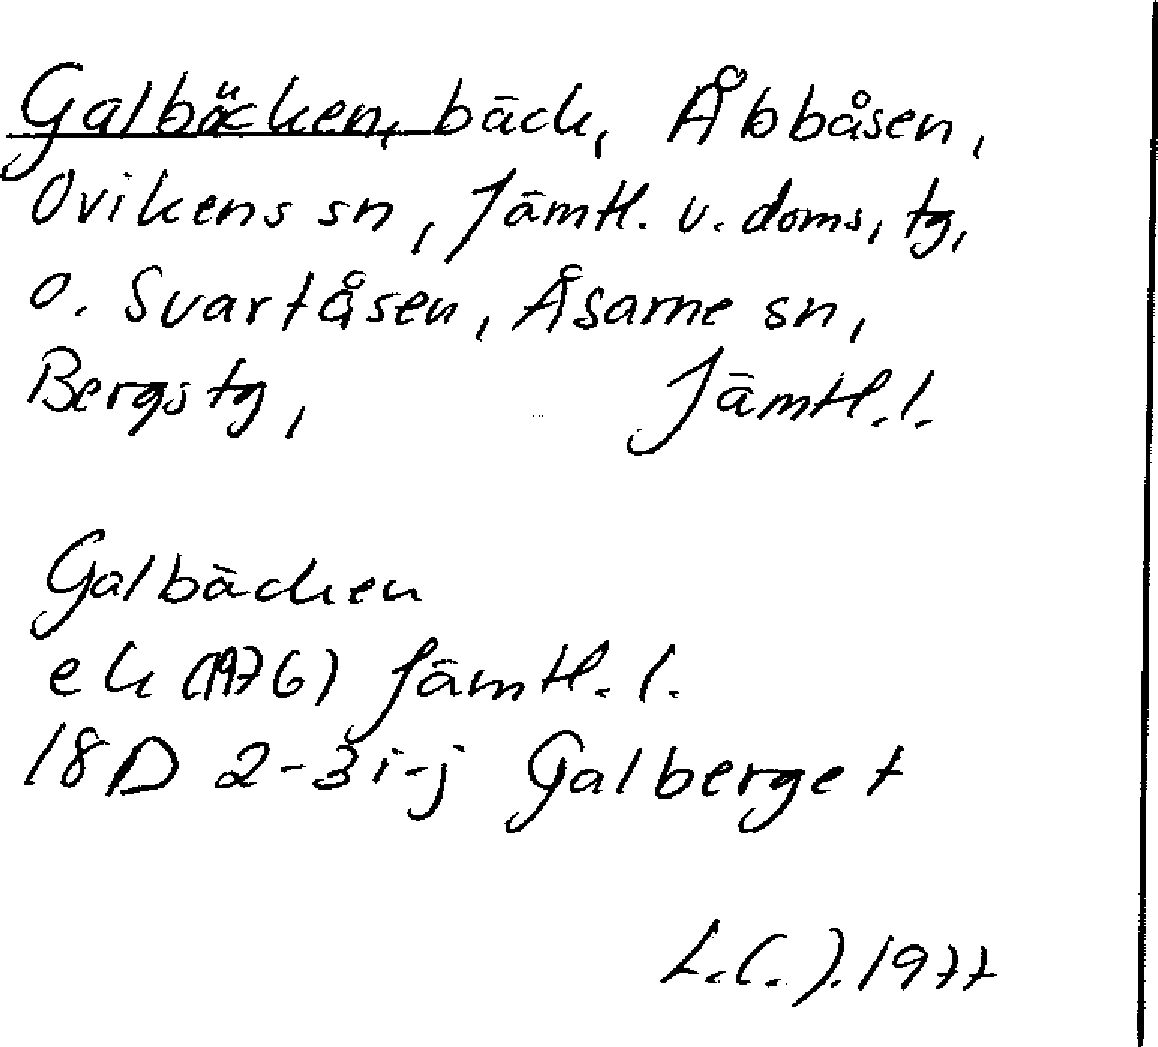 Galbäcken, bäck, Åbbåsen,
Ovikens sn, Jämtl. v. doms. tg,
o. Svartåsen, Åsarne sn,
Bergs tg, Jämtl. l.
Galbäcken
ek (1976) Jämtl. l.
18D 2-3 i-j Galberget
L.C.J. 1977